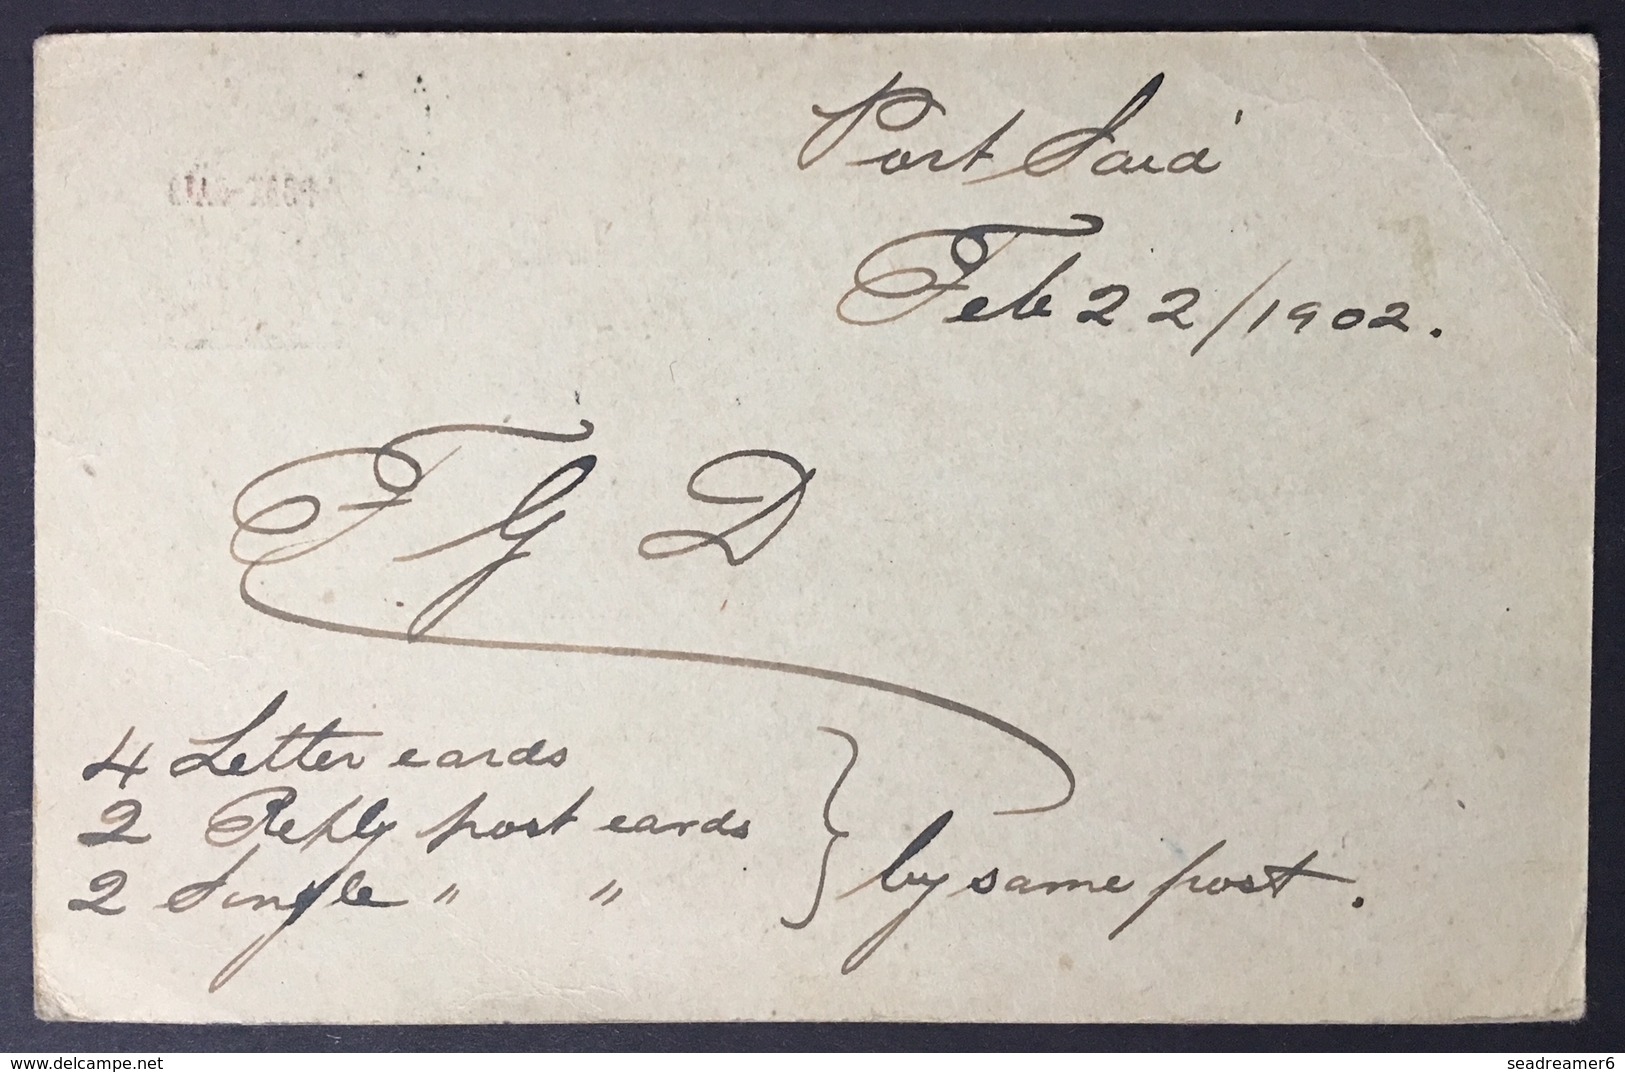 Port Said
Feb 22/1902.
F G D
4 Letter cards
2 Reply post cards
2 Single " " } by same post.
www.delcampe.net
seadreamer6